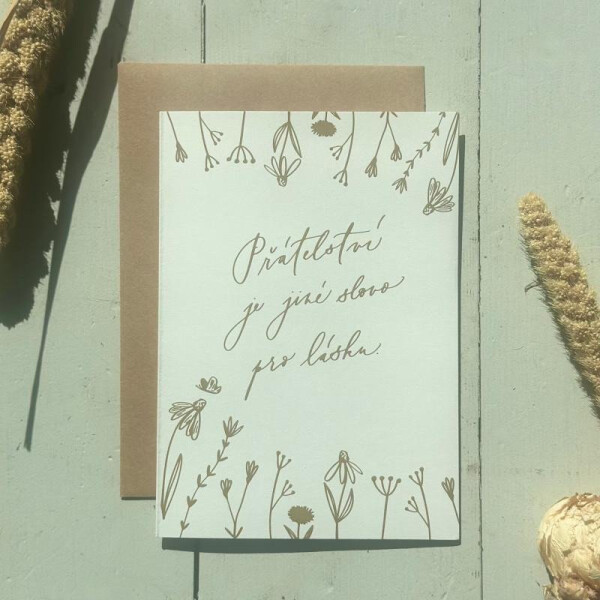 Přátelství
je jiné slovo
pro lásku.